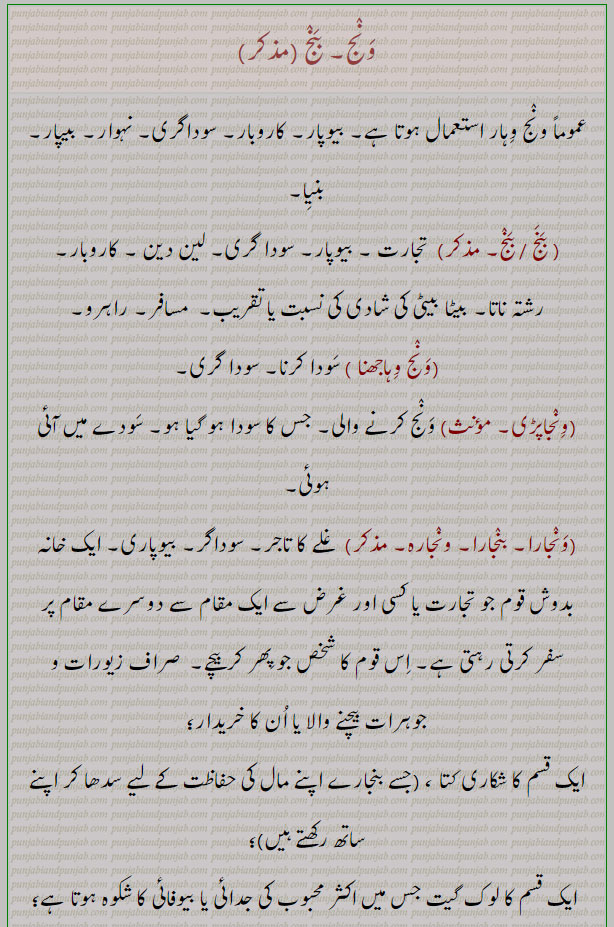 وَنْجْ۔ بَنْجْ (مذکر)
عموماً ونْجْ وِہار استعمال ہوتا ہے۔ بیوپار۔ کاروبار۔ سوداگری۔ نہوار۔ بیپار۔
بنیِا۔
(بَنَجْ / بَنْجْ۔ مذکر) تجارت ۔ بیوپار۔ سودا گری۔ لین دین ۔ کاروبار۔
رشتہ ناتا۔ بیٹا بیٹی کی شادی کی نسبت یا تقریب۔ مسافر۔ راہرو۔
(وَنْجْ وِہاجھنا ) سَودا کرنا۔ سودا گری۔
(وِنْجاپڑی۔ مؤنث) وَنْجْ کرنے والی۔ جس کا سودا ہو گیا ہو۔ سَودے میں آئی
ہوئی۔
(وَنْجارا۔ بنْجارا۔ ونْجارہ۔ مذکر) غلے کا تاجر۔ سوداگر۔ بیوپاری۔ ایک خانہ
بدوش قوم جو تجارت یا کسی اور غرض سے ایک مقام سے دوسرے مقام پر
سفر کرتی رہتی ہے۔ اِس قوم کا شخص جو پھر کر بیچے۔ صراف زیورات و
جوہرات بیچنے والا یا اُن کا خریدار؛
ایک قسم کا شکاری کتا ، (جسے بنجارے اپنے مال کی حفاظت کے لیے سدھا کر اپنے
ساتھ رکھتے ہیں)؛
ایک قسم کا لوک گیت جس میں اکثر محبوب کی جدائی یا بیوفائی کا شکوہ ہوتا ہے؛